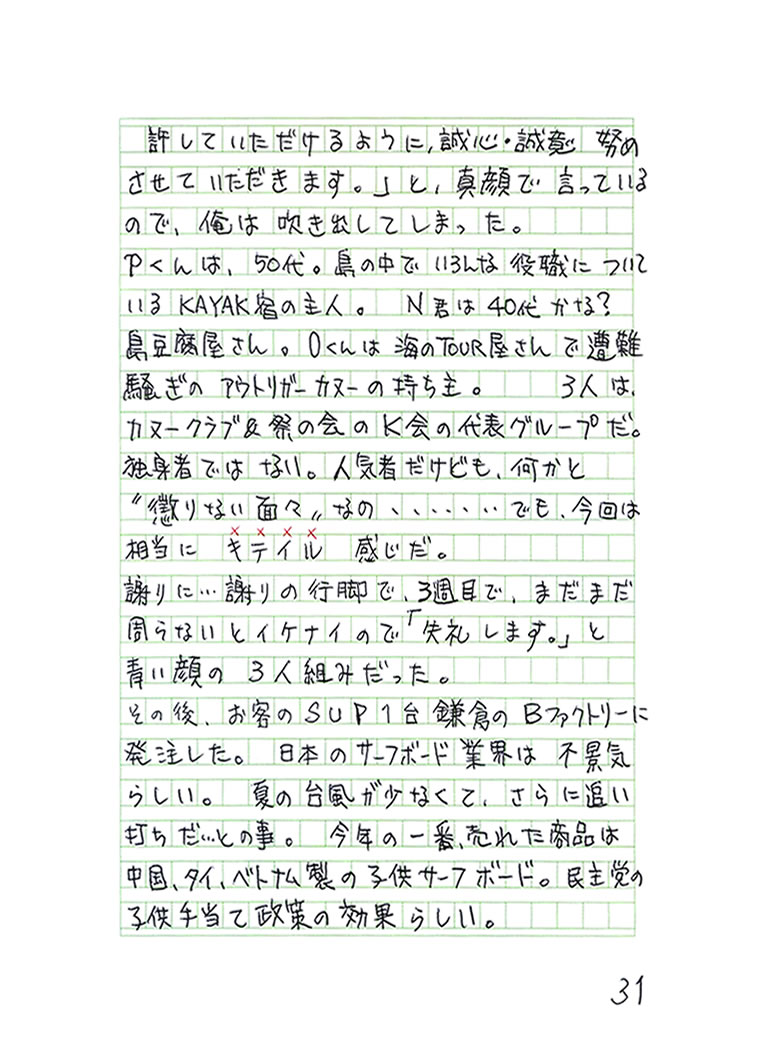 許していただけるように,誠心・誠意 努め
させていただきます。」と,真顔で言っている
ので、俺は吹き出してしまった。
Pくんは、50代。島の中でいろんな役職について
いるKAYAK宿の主人。 N君は40代かな?
島豆腐屋さん。Oくんは海のTOUR屋さんで遭難
騒ぎのアウトリガーカヌーの持ち主。 3人は、
カヌークラブ&祭の会のK会の代表グループだ。
独身者ではない。人気者だけども、何かと
〝懲りない面々〟なの、、、、、、でも、今回は
××××
相当に キテイル 感じだ。
謝りに…謝りの行脚で、3週目で、まだまだ
周らないとイケナイので「失礼します。」と
青い顔の3人組みだった。
その後、お客のSUP1台鎌倉のBファクトリーに
発注した。 日本のサーフボード業界は不景気
らしい。 夏の台風が少なくて、さらに追い
打ちだ…との事。 今年の一番、売れた商品は
中国、タイ、ベトナム製の子供サーフボード。民主党の
子供手当て政策の効果らしい。
31